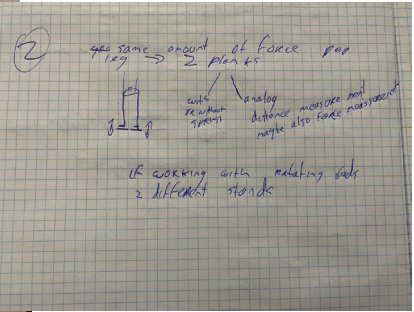 2
same amount of force per
leg → 2 planks
with
or without
springs
analog
distance measurement
maybe also force measurement
if working with rotating rods
2 different stands